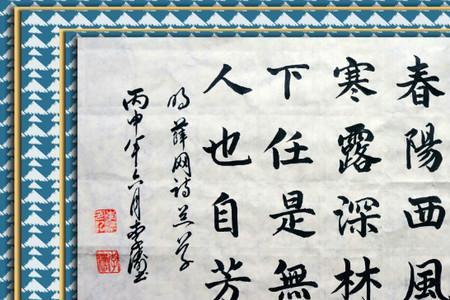 春陽西風
寒露深林
下任是無
人也自芳
明薛网诗兰草
丙申年六月